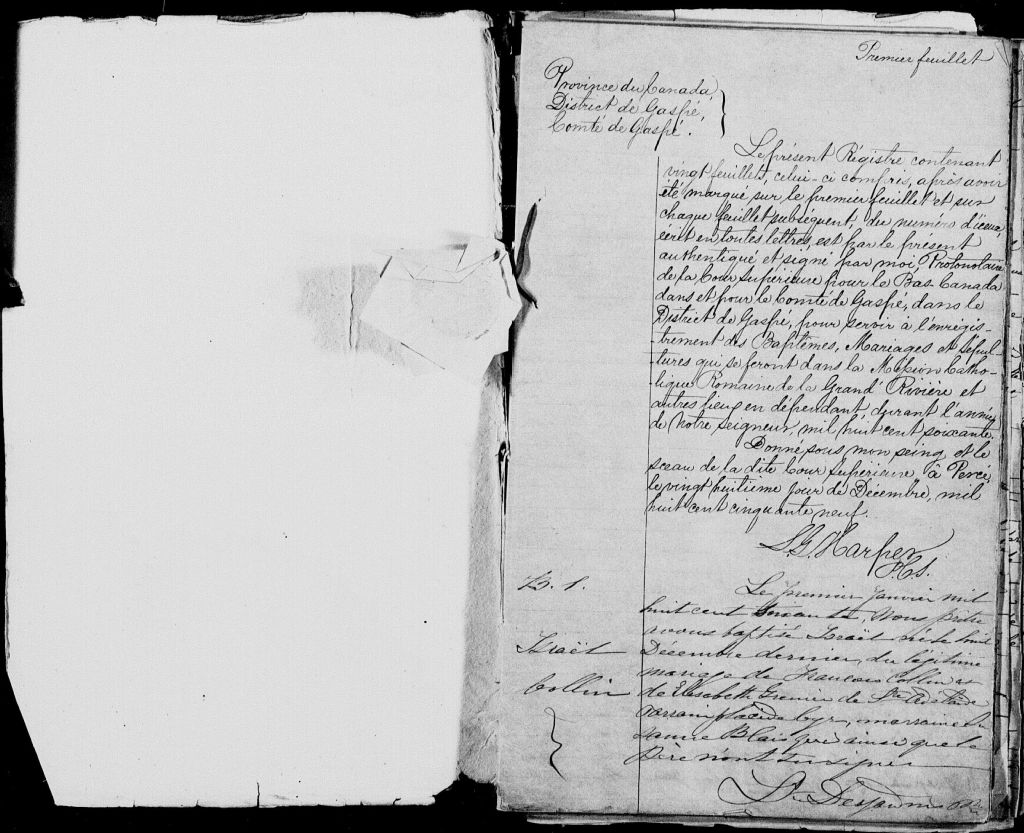 Premier feuillet
Province du Canada,
District de Gaspé,
Comté de Gaspé.
Le présent Régistre contenant
vingt feuillets, celui-ci compris, après avoir
été marqué sur le premier feuillet et sur
chaque feuillet subséquent, du numéro d'iceux,
écrit en toutes lettres, est par le présent
authentiqué et signé par moi, Protonotaire
de la Cour Supérieure pour le Bas-Canada
dans et pour le Comté de Gaspé, dans le
District de Gaspé, pour servir à l'enrégis-
-trement des Baptêmes, Mariages et Sépul-
-tures qui se feront dans la Mission Catho-
-lique Romaine de la Grand' Rivière et
autres lieux en dépendant, durant l'année
de Notre Seigneur, mil huit cent soixante.
Donné sous mon seing et le
sceau de la dite Cour Supérieure, à Percé,
le vingt huitième jour de Décembre, mil
huit cent cinquante neuf.
L. G. Harper
P.C.S.
B. 1.
Israël
Collin
Le premier Janvier mil
huit cent soixante, Nous prêtre
avons baptisé Israël né le huit
Décembre dernier, du légitime
mariage de François Collin et
de Elisabeth Grenier de
Parrain Placide Cyr, marraine
Blais qui ainsi que le
Père n'ont su signer
Desjardins